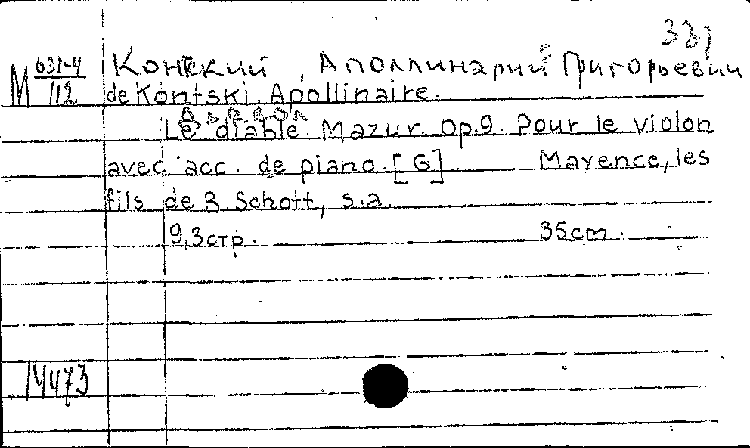 337
М 631-4/112
Контский, Аполлинарий Григорьевич
de Kontski, Apollinaire.
Le diable Mazur. Op.9. Pour le violon
avec acc. de piano. [G] Mayence, les
fils de B. Schott, s.a.
9,3 стр. 35 cm.
14473